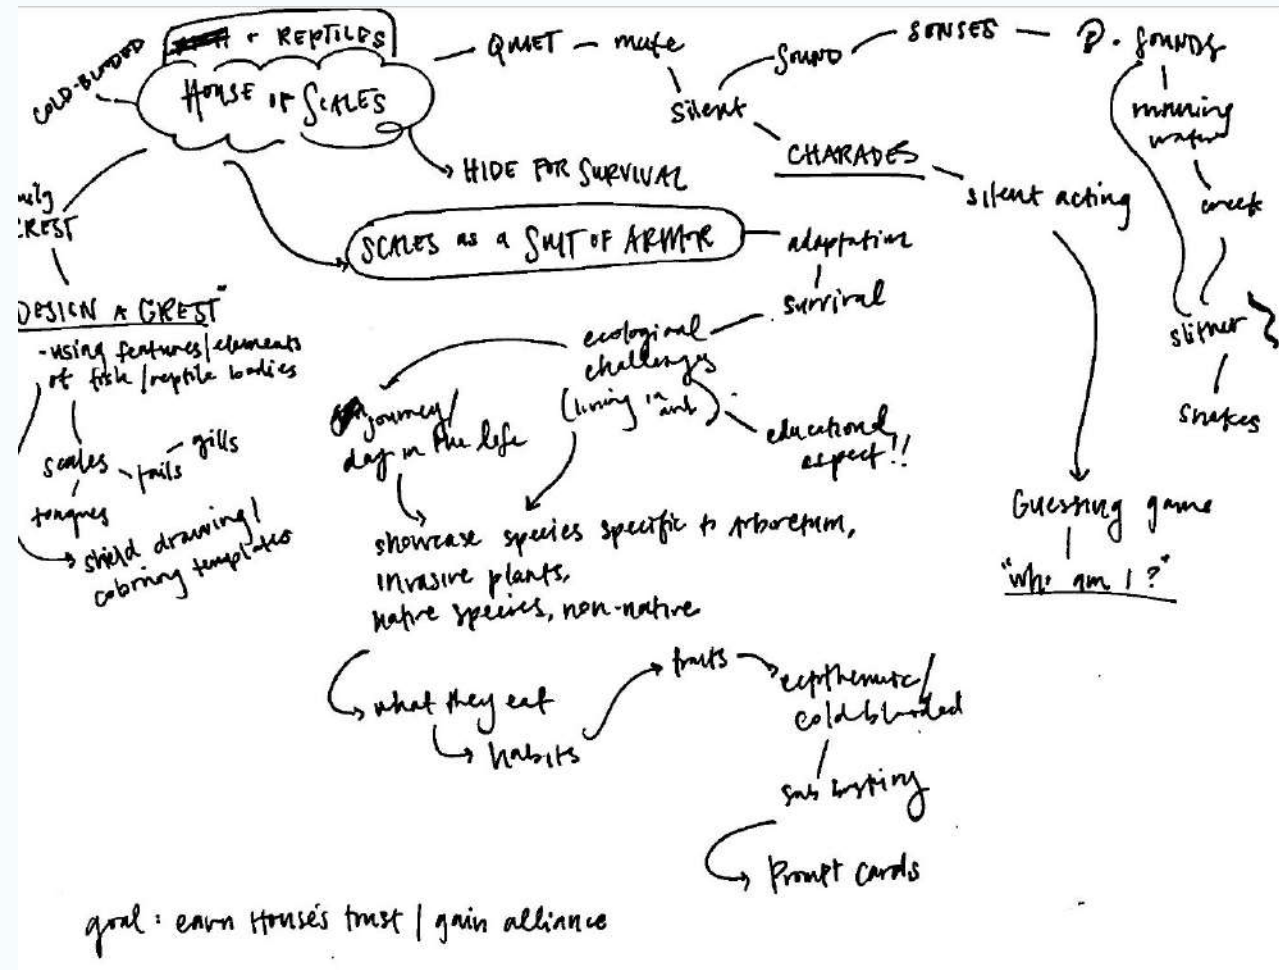 COLD-BLOODED
+ REPTILES
HOUSE OF SCALES
QUIET — mute
silent
SOUND
SENSES
SOUNDS
running
water
creek
slither
snakes
CHARADES
silent acting
Guessing game
"who am I?"
HIDE FOR SURVIVAL
SCALES as a SUIT OF ARMOR
adaptation
survival
ecological
challenges
(living in arb)
educational
aspect!!
journey/
day in the life
showcase species specific to Arboretum,
invasive plants,
native species, non-native
what they eat
habits
traits
ectothermic/
cold blooded
sun basking
Prompt cards
CREST
DESIGN A CREST"
-using features/elements
of fish/reptile bodies
scales
tails
gills
tongues
shield drawing/
coloring templates
goal: earn House's trust / gain alliance